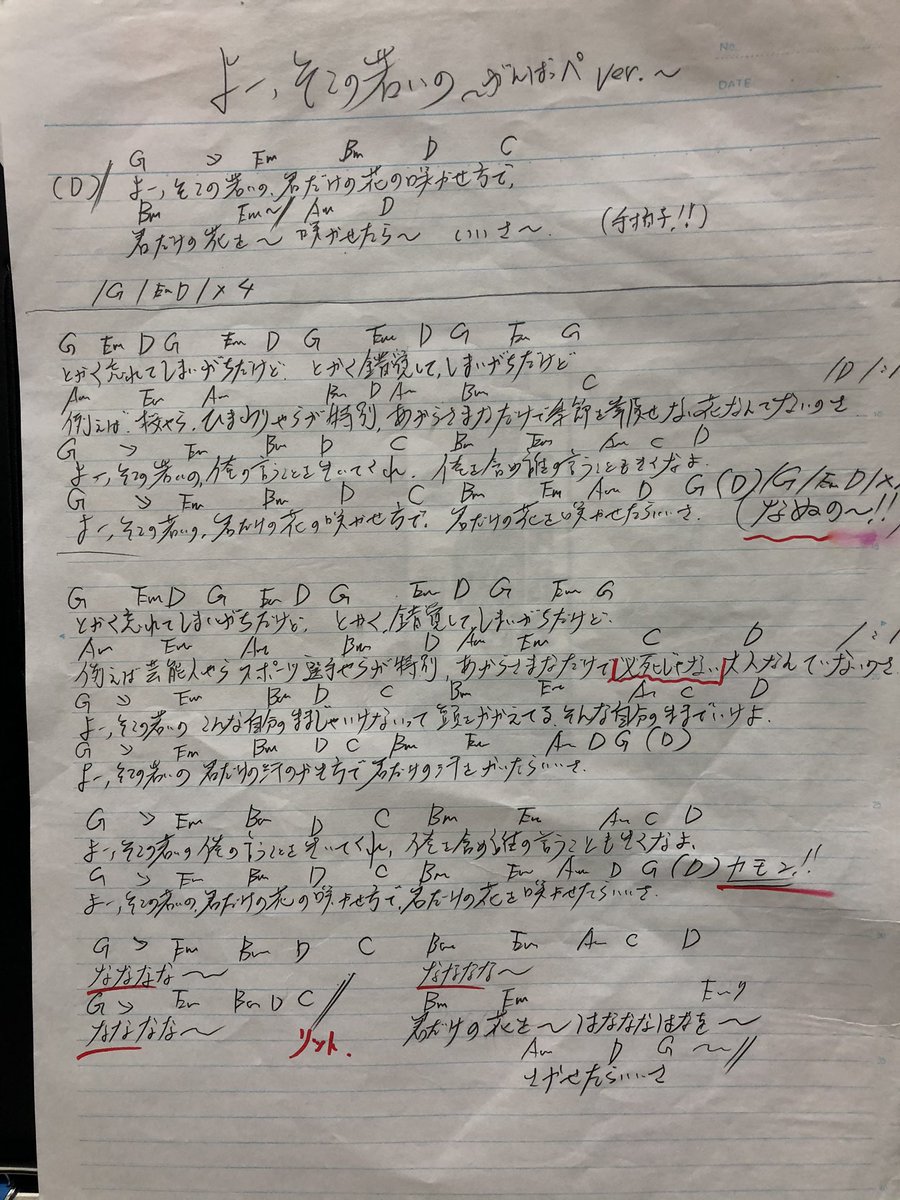 よー、そこの若いの 〜がんばっぺ ver.〜
NO.
DATE
G > Em Bm D C
(D)// よー、そこの若いの、君だけの花の咲かせ方で、
Bm Em〜// Am D
君だけの花を〜 咲かせたら〜 いいさ〜 (手拍子!!)
/G / Em D / × 4
G Em D G Em D G Em D G Em G
とかく忘れてしまいがちだけど とかく錯覚して、しまいがちだけど
Am Em Am Bm D Am Bm C /D /:/
例えば、桜やら、ひまわりやらが特別、あからさまなだけで季節を着せない花なんてないのさ
G > Em Bm D C Bm Em Am C D
よー、そこの若いの、俺の言うことをきいてくれ、俺を含め誰の言うこともきくなよ。
G > Em Bm D C Bm Em Am D G (D) /G / Em D / ×
よー、そこの若いの、君だけの花の咲かせ方で、君だけの花を咲かせたらいいさ (なぬの〜!!
G Em D G Em D G Em D G Em G
とかく忘れてしまいがちだけど、とかく、錯覚して、しまいがちだけど、
Am Em Am Bm D Am Em C D /:/
例えば芸能人やらスポーツ選手やらが特別、あからさまなだけで必死じゃない大人なんていないのさ
G > Em Bm D C Bm Em Am C D
よー、そこの若いの こんな自分のままじゃいけないって頭をかかえてる、そんな自分のままでいけよ、
G > Em Bm D C Bm Em Am D G (D)
よー、そこの若いの 君だけの汗のかき方で君だけの汗をかいたらいいさ
G > Em Bm D C Bm Em Am C D
よー、そこの若いの 俺の言うことをきいてくれ、俺を含め誰の言うこともきくなよ、
G > Em Bm D C Bm Em Am D G (D) カモン!!
よー、そこの若いの、君だけの花の咲かせ方で、君だけの花を咲かせたらいいさ
G > Em Bm D C Bm Em Am C D
なななな〜 なななな〜
G > Em Bm D C // Bm Em Em7
なななな〜 リット. 君だけの花を〜はなななはなを〜
Am D G 〜//
さかせたらいいさ